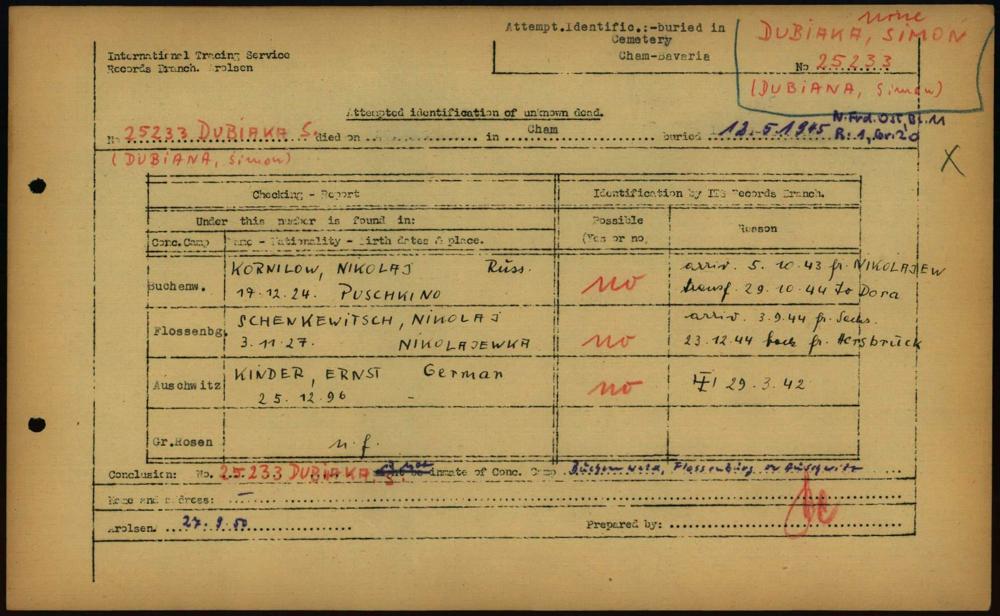 Attempt.Identific.:-buried in
Cemetery
Cham-Bavaria
none
DUBIAKA, SIMON
No 25233
(DUBIANA, Simon)
International Tracing Service
Records Branch. Arolsen
Attempted identification of unknown dead.
No 25233 DUBIAKA S. died on in Cham buried 12.5.1945 N.Frd.Ost, Bl.11
R:1, Gr:20
(DUBIANA, Simon)
X
Checking - Report Identification by ITS Records Branch.
Under this number is found in: Possible Reason
Conc.Camp Name - Nationality - Birth dates & place. (Yes or no)
Buchenw. KORNILOW, NIKOLAJ Russ. no arriv. 5.10.43 fr. NIKOLAJEW
19.12.24. PUSCHKINO transf. 29.10.44 to Dora
Flossenbg. SCHENKEWITSCH, NIKOLAJ no arriv. 3.9.44 fr. Sachs.
3.11.27. NIKOLAJEWKA 23.12.44 back fr. Hersbrück
Auschwitz KINDER, ERNST German no 29.3.42
25.12.96 -
Gr.Rosen n.f.
Conclusion: No. 25233 DUBIAKA S. inmate of Conc. Camp Buchenwald, Flossenbürg or Auschwitz
Name and address: —
Arolsen, 27.9.50 Prepared by: